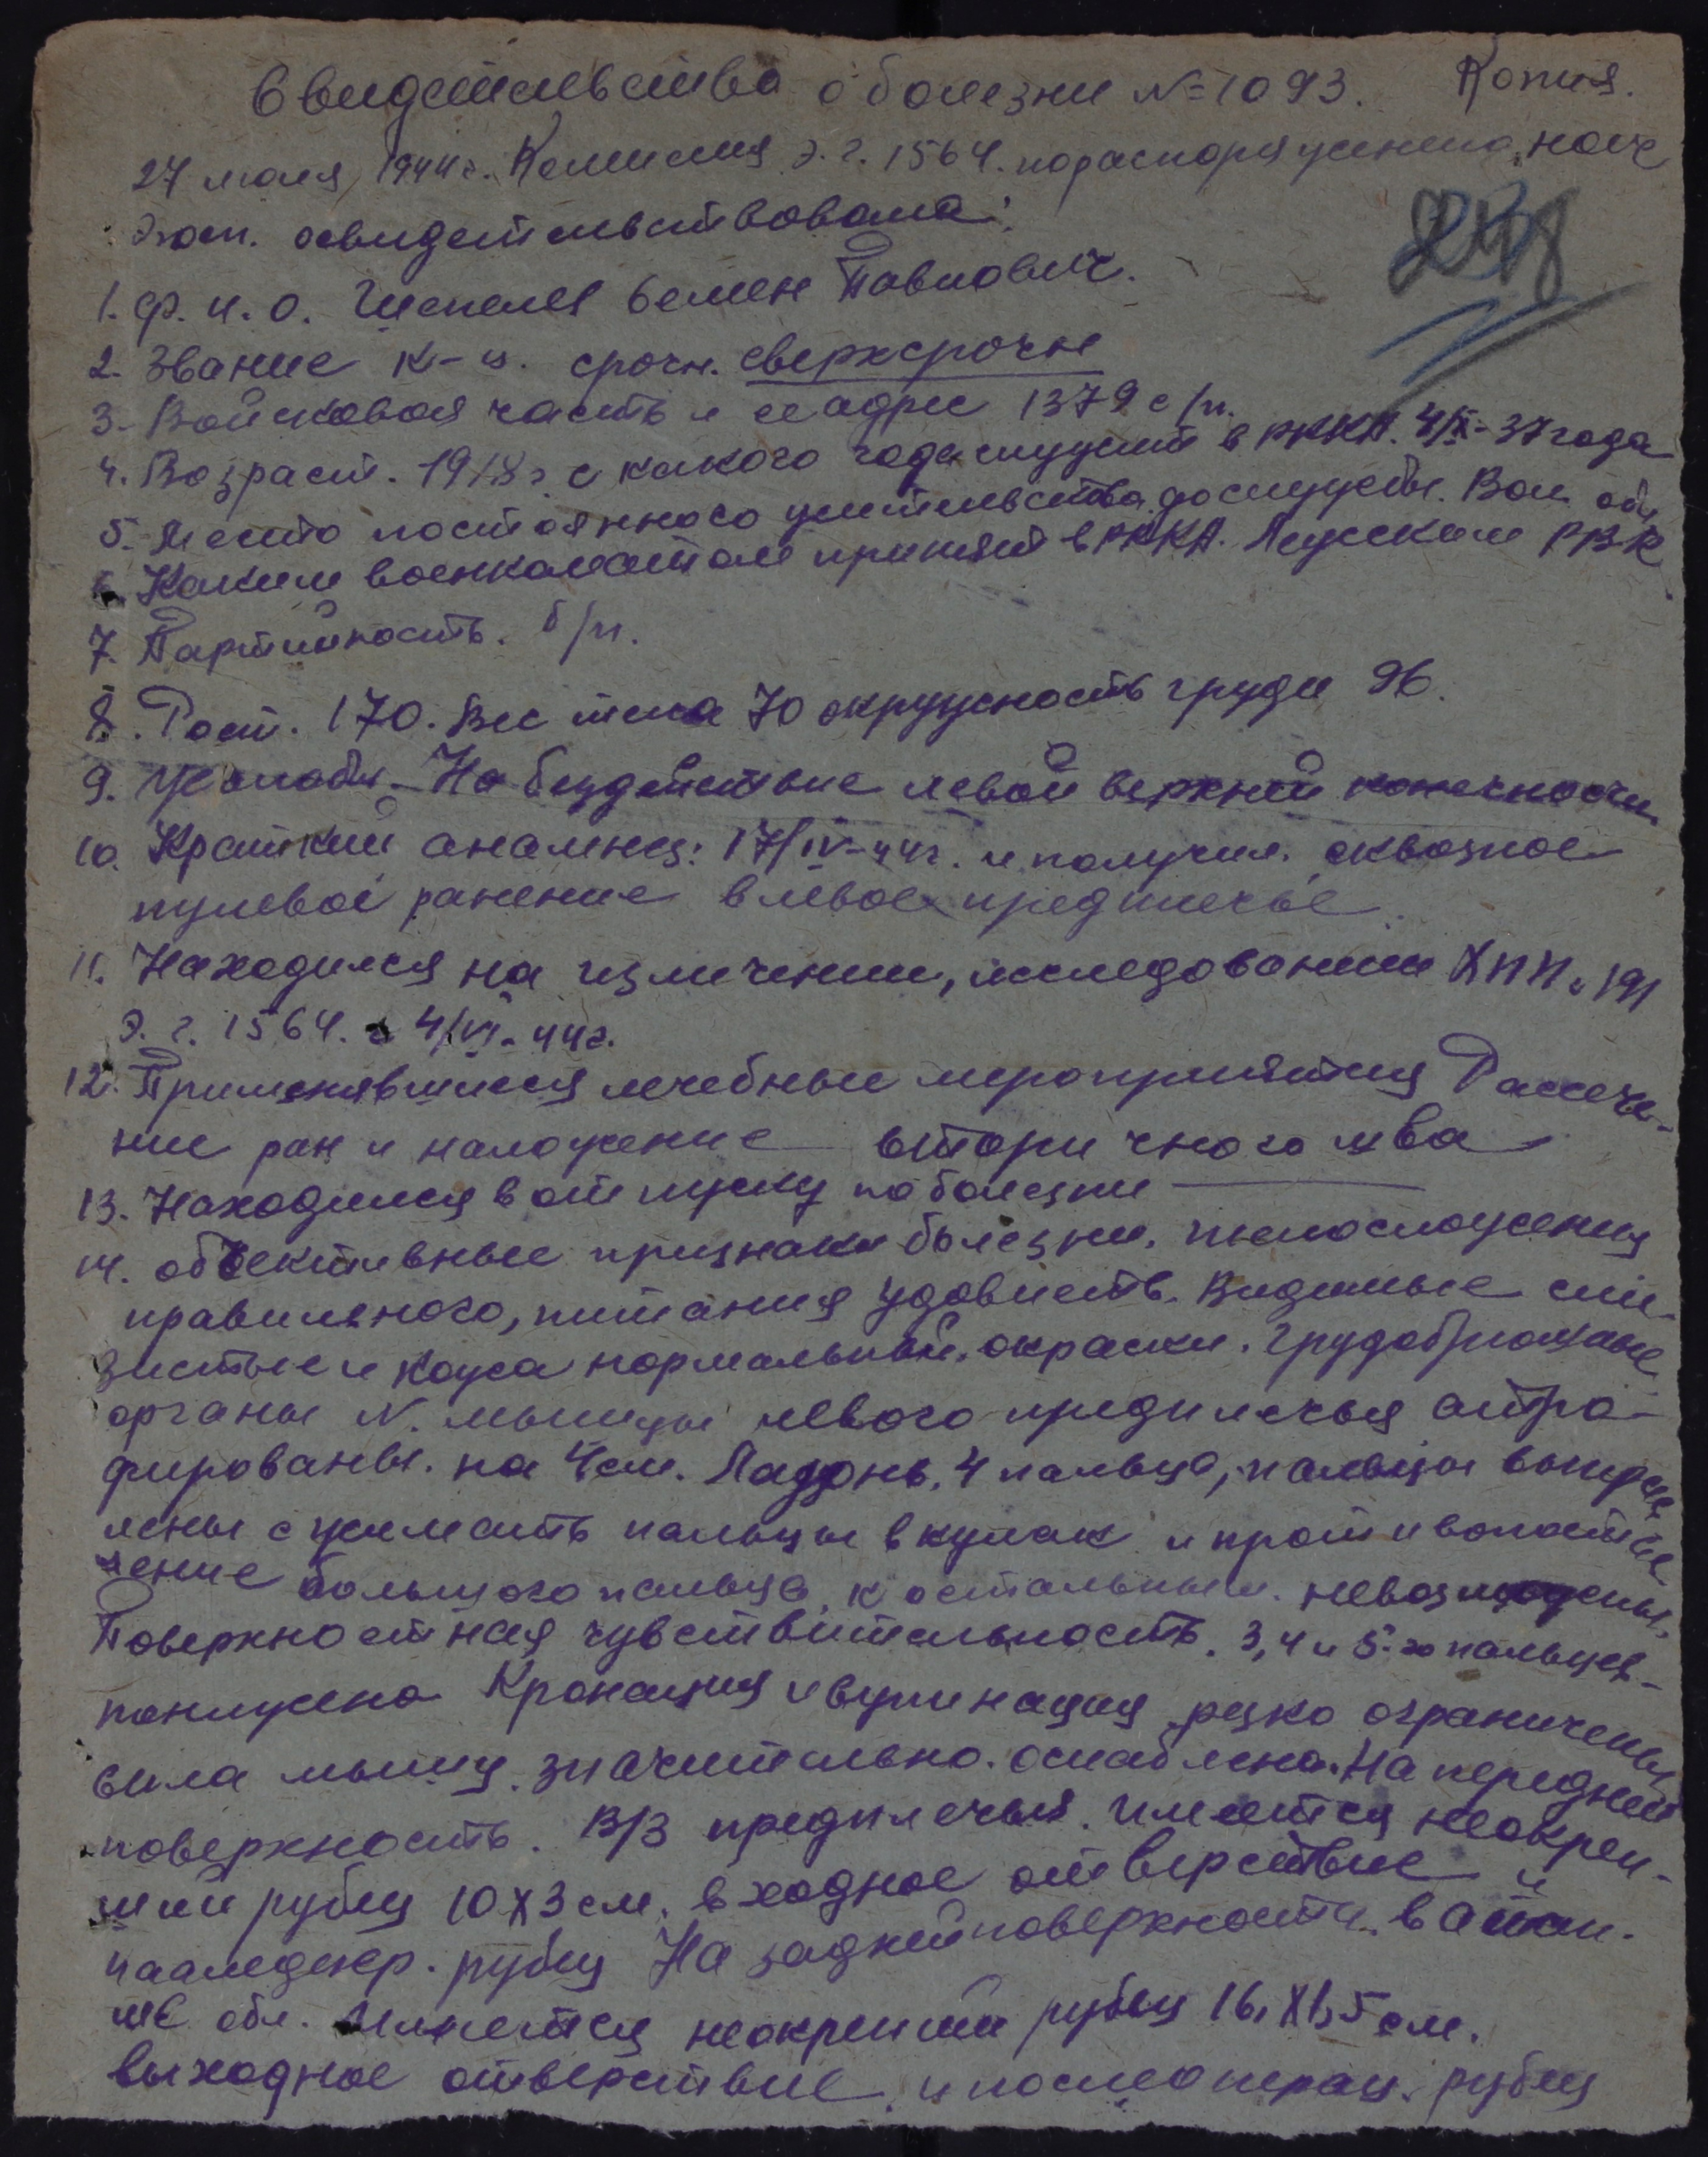 Свидетельство о болезни №1093. Копия.
27 июля 1944 г. Комиссия э. г. 1564. по распоряжению нач
госп. освидетельствовала:
1. ф. и. о. Шепеля Семен Павлович.
2. Звание к-ц. срочн. сверхсрочн
3. Войсковая часть и ее адрес 1379 с/п.
4. Возраст. 1918 г. с какого года служит в РККА. 4/IX-37 года
5. Место постоянного жительства до службы. Вол. обл
6. Каким военкоматом принят в РККА. Луцским РВК
7. Партийность. б/п.
8. Рост. 170. Вес тела 70 окружность груди 96.
9. Жалобы. На бездействие левой верхней конечности
10. Краткий анамнез: 17/IV-44г. получил. сквозное
пулевое ранение в левое предплечье.
11. Находился на излечении, исследовании ХПП 191
э. г. 1564. с 4/VI-44г.
12. Применявшиеся лечебные мероприятия Рассече-
ние ран и наложение вторичного шва
13. Находился в отпуску по болезни —
14. объективные признаки болезни. телосложения
правильного, питания удовлетв. Видимые сли-
зистые и кожа нормальной окраски. Грудобрюшные
органы N. мышцы левого предплечья атро-
фированы. на 4 см. Ладонь. 4 пальца, пальцы выпрям
лены сжимать пальцы в кулак и противопостав
ление большого пальца, к остальным. невозможны.
Поверхностная чувствительность. 3, 4 и 5-го пальцев-
понижена Пронация и супинация резко ограничены
сила мышц. значительно. ослаблена. На передней
поверхность. В/3 предплечья. имеется неокреп-
ший рубец 10х3 см. входное отверстие и
рубец На задней поверхности. в
же обл. Имеется неокрепший рубец 16,Х1,5 см.
выходное отверстие. и послеоперац. рубец